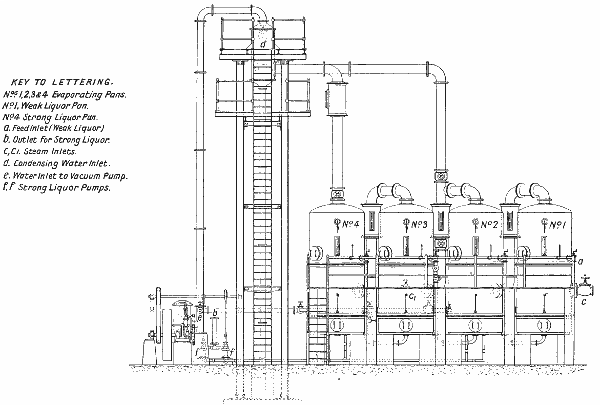 KEY TO LETTERING.
Nos 1,2,3 & 4 Evaporating Pans.
No 1, Weak Liquor Pan.
No 4 Strong Liquor Pan.
a. Feed Inlet (Weak Liquor)
b. Outlet for Strong Liquor.
C, C1. Steam Inlets.
d. Condensing Water Inlet.
e. Water Inlet to Vacuum Pump.
f, f Strong Liquor Pumps.
d
No 4 No 3 No 2 No 1
a
c
C1
b